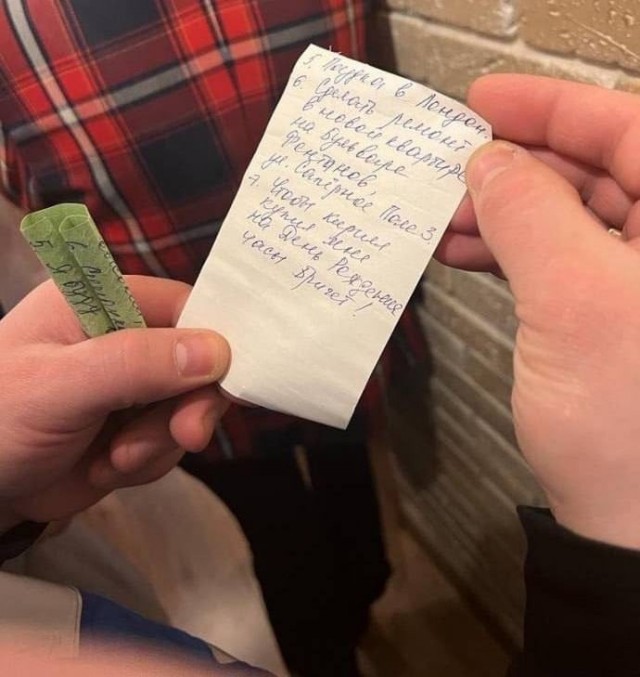 5. Поездка в Лондон.
6. Сделать ремонт
в новой квартире
на Бульваре
Фонтанов,
ул. Сапёрное Поле 3.
7. Чтобы Кирилл
купил мне
на День Рождения
часы Бригет!
5
6